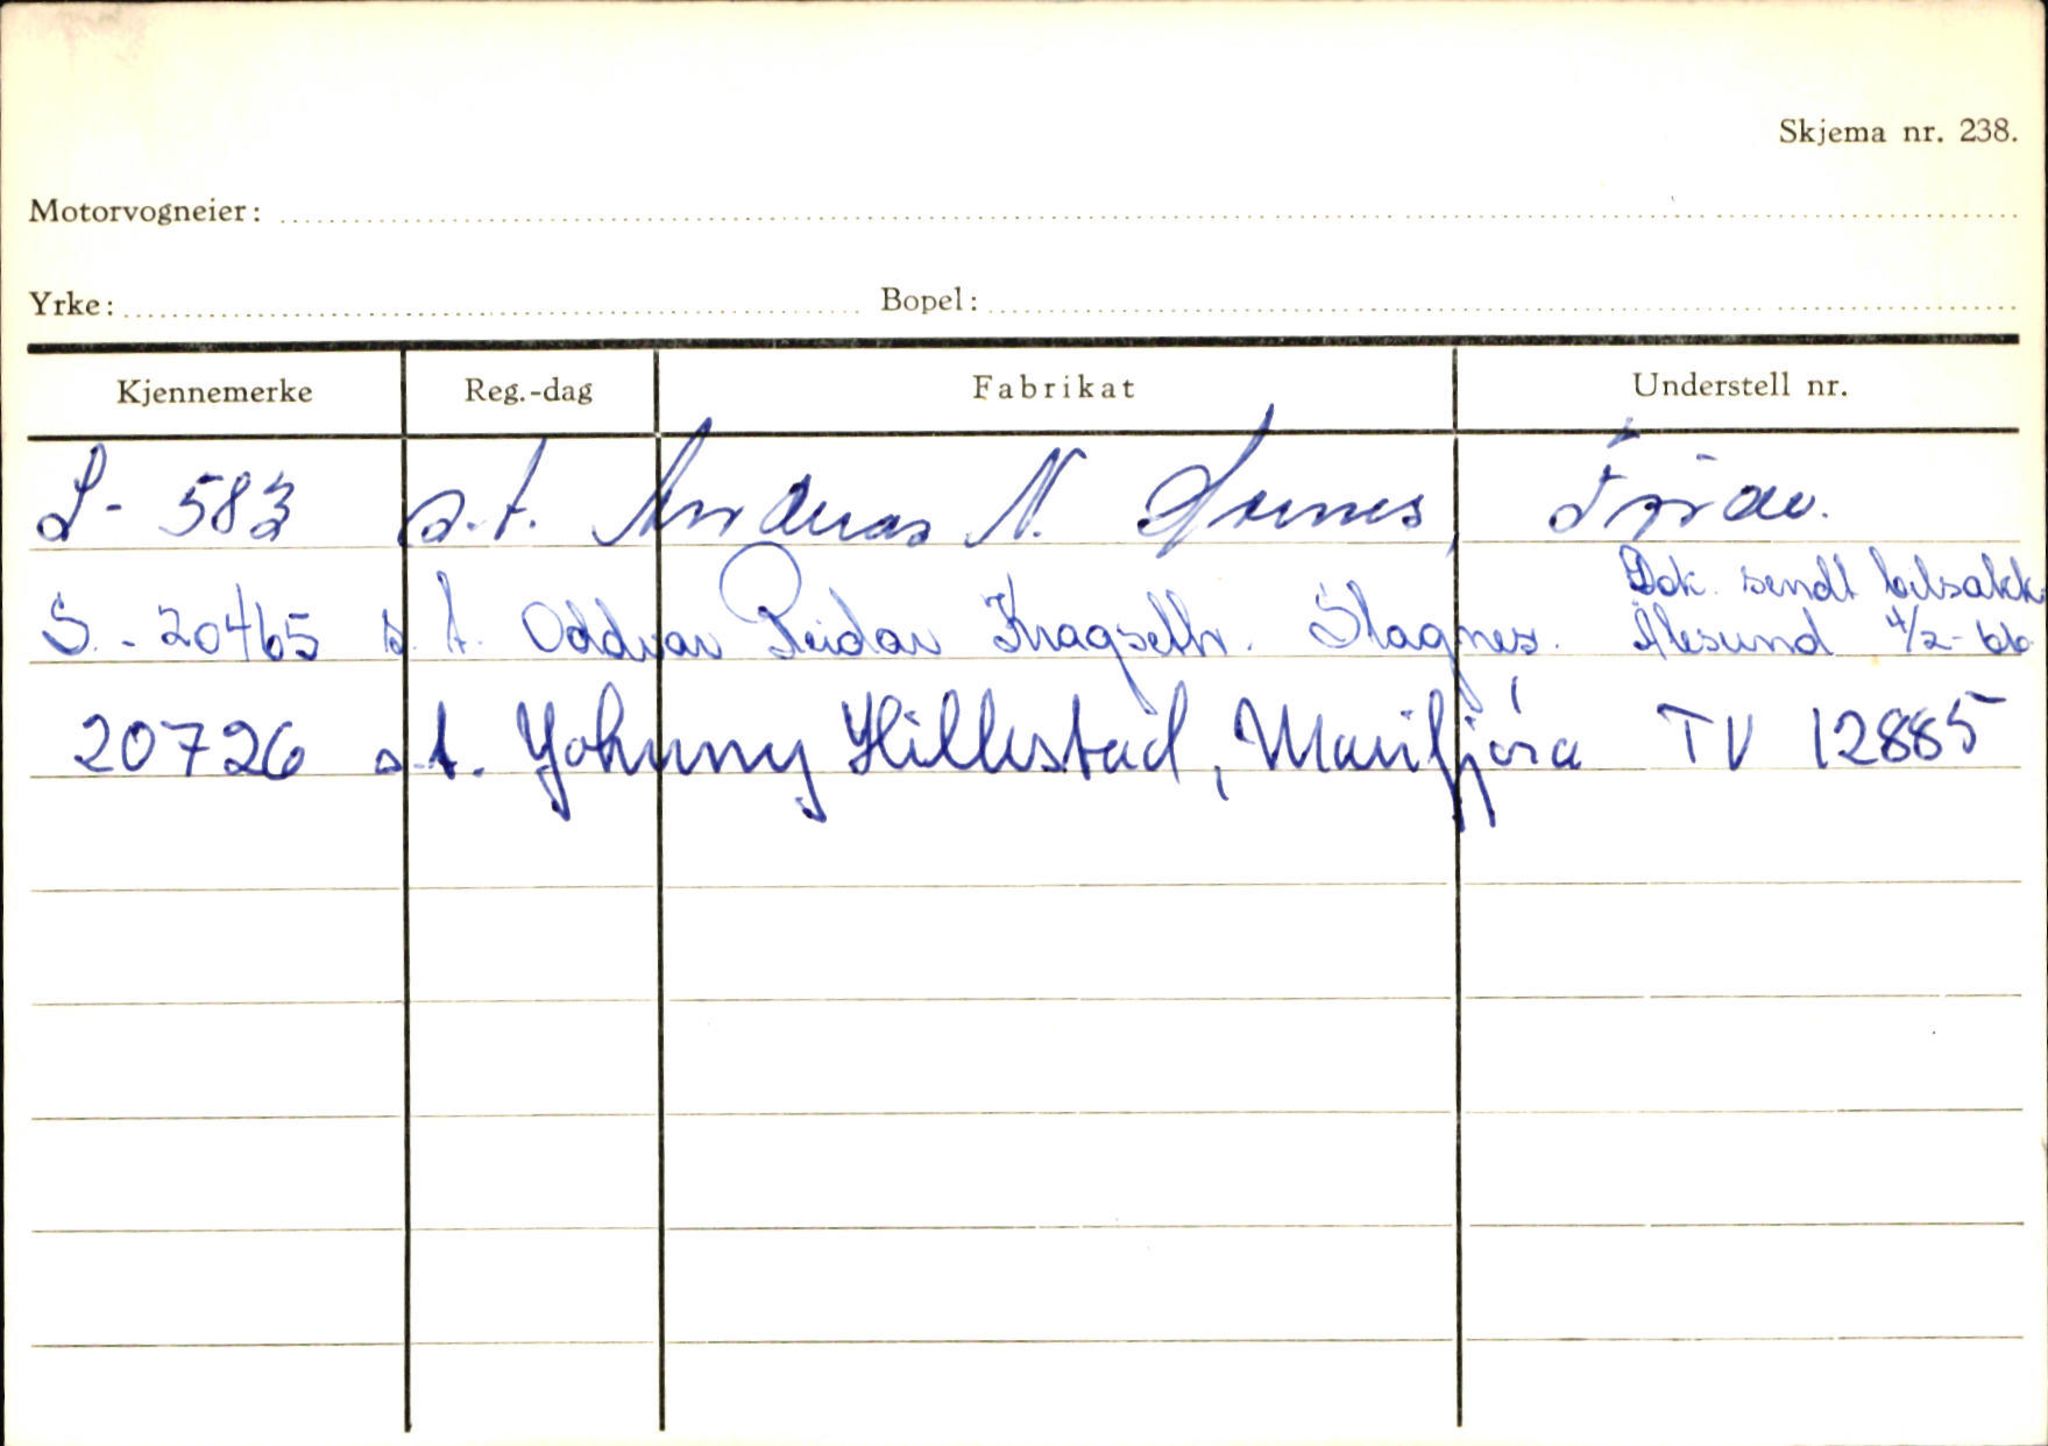 Skjema nr. 238.
Motorvogneier:
Yrke: Bopel:
Kjennemerke Reg.-dag Fabrikat Understell nr.
S- 583 s.t. Andreas N.
Dok. sendt bilsakk.
S.-20465 s.t. Oddvar Reidar Kragseth. Ålesund 4/2-66
20726 s.t. Johnny Hillestad, Marifjøra TV 12885